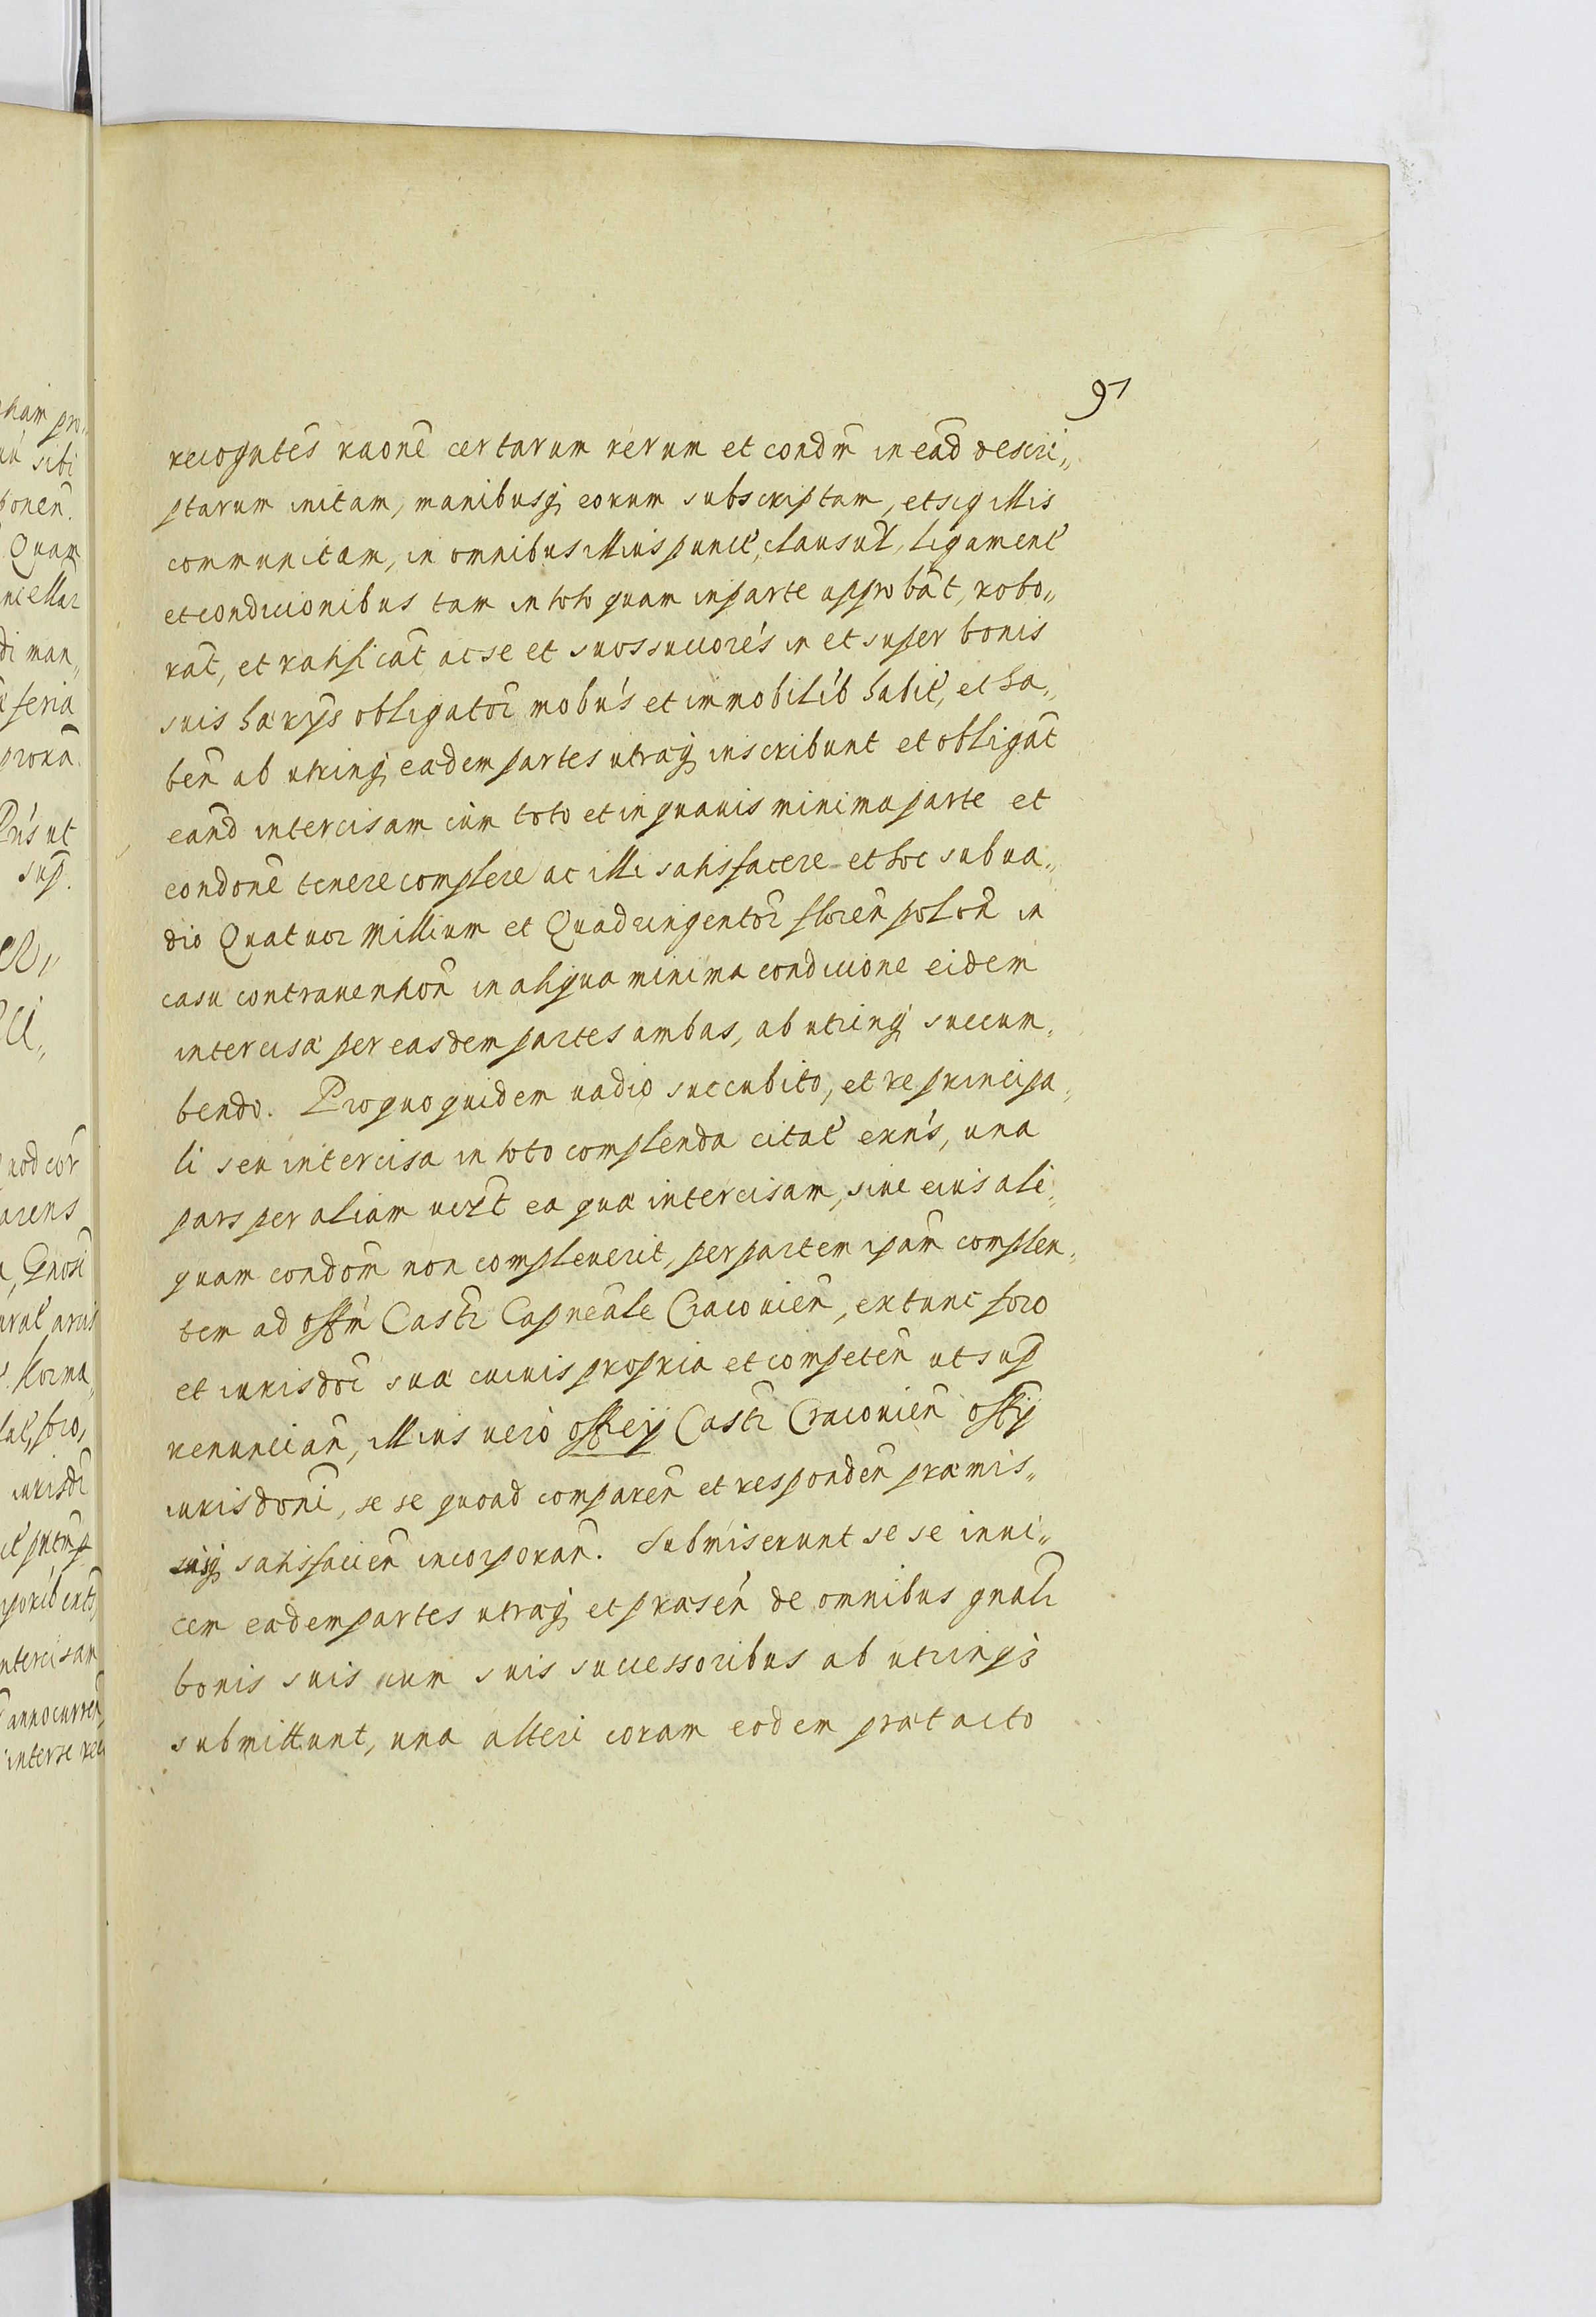 97
recogntēs raonē certarum rerum et condm̄ in eād descri„
ptarum initam, manibusq; eorum subscriptam, et sigillis
communitam, in omnibus illius punct, clausul, ligament
et condicionibus tam in toto quam in parte approbāt, robo„
rāt, et ratificāt, ac se et suos succorés in et super bonis
suis hæryś obligator mobńs et immobilib́ habit, et ha„
beñ ab utrinq; eædem partes utraq; inscribunt et obligāt
eañd intercisam cum toto et in quauis minima parte et
condonē tenere complere ac illi satisfacere et hoc sub ua„
dio Quatuor Millium et Quadringentor̄ floreñ poloñ in
casu contrauentioñ in aliqua minima condicione eidem
intercisæ per easdem partes ambas, ab utrinq; succum„
bendo. Pro quo quidem uadio succubito, et re principa„
li seu intercisa in toto complenda citat exńs, una
pars per aliam uizt ea quæ intercisam, siue eius ali„
quam condom̄ non compleuerit, per partem ipam̄ complen„
tem ad offm̄ Castr̄ Capneāle Cracouieñ, extunc foro
et iurisdoē sua cuiuis propria et competeñ ut sup̄
renunciañ, illius uerò offcÿ Castr̄ Cracouieñ offÿ
iurisdonī, se se quoad compareñ et respondeñ præmis„
sisq; satisfacieñ incorporañ. Submiserunt se se inui„
cem eædem partes utraq; et præseń de omnibus gnalr̄
bonis suis cum suis successoribus ab utrinq;
submittunt, una alteri coram eodem prætacto